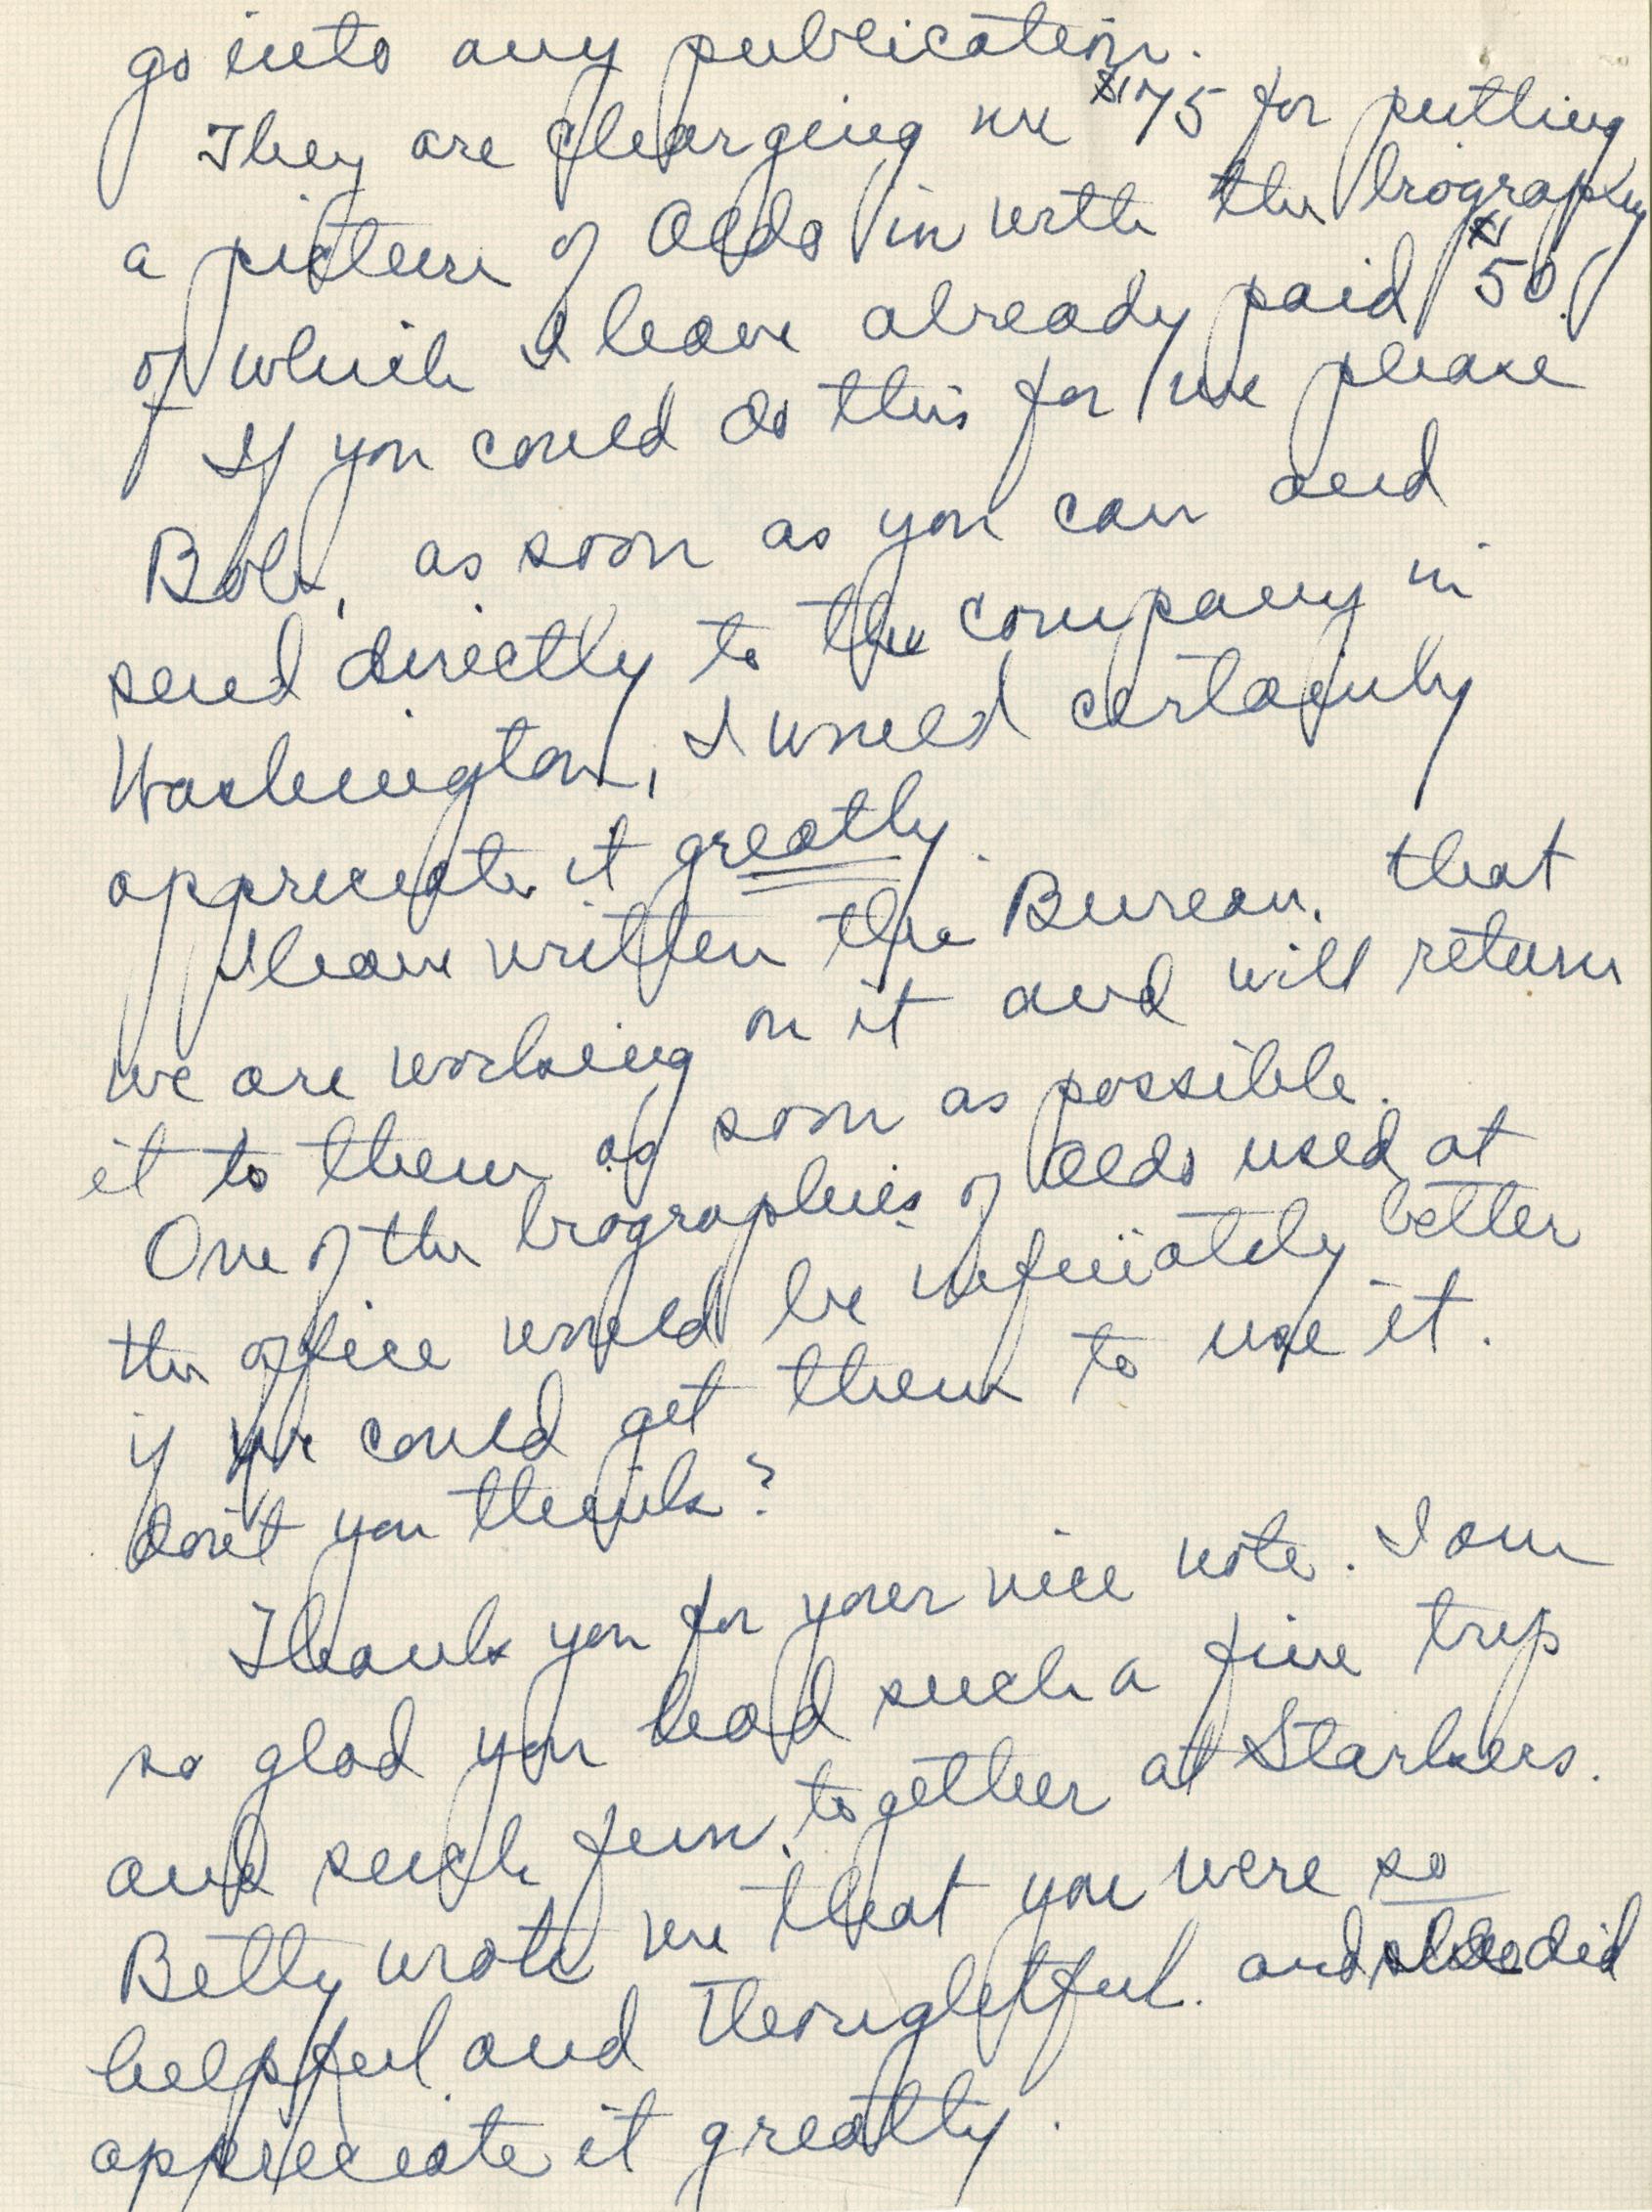 go into any publication.
They are charging me $75 for putting
a picture of Olds in with the biography
of which I have already paid $50.
If you could do this for me please
Bob, as soon as you can and
send directly to the company in
Washington, I would certainly
appreciate it greatly.
I have written the Bureau, that
we are working on it and will return
it to them as soon as possible.
One of the biographies of Olds used at
the office would be infiniately better
if we could get them to use it.
don't you think?
Thank you for your nice note. I am
so glad you had such a fine trip
and such fun together at Starkers.
Betty wrote me that you were so
helpful and thoughtful. and she did
appreciate it greatly.